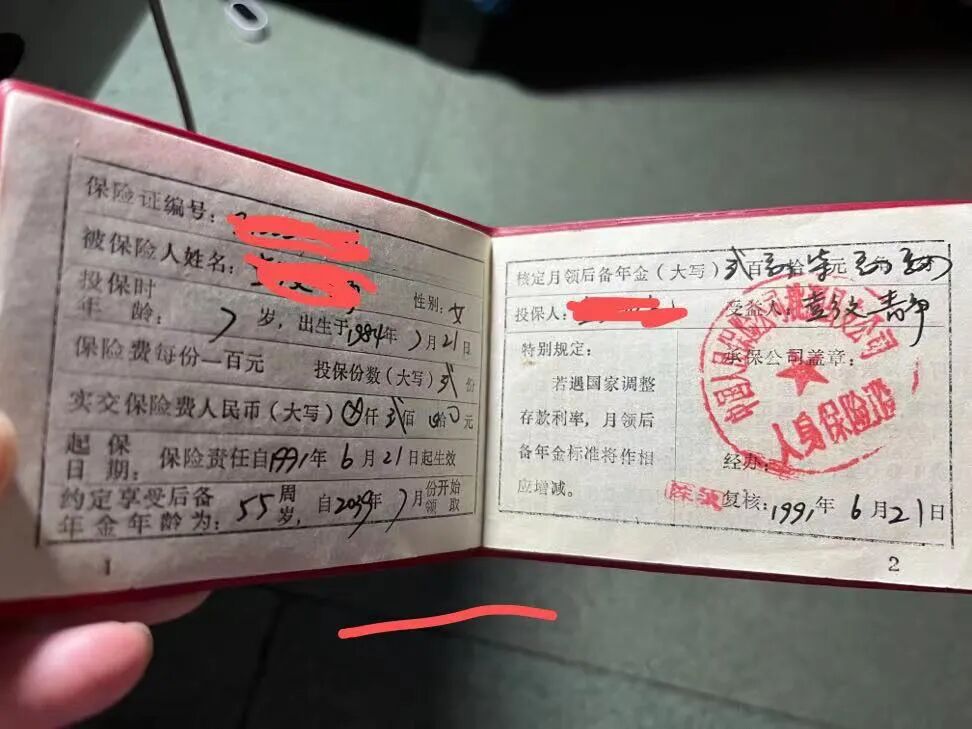 保险证编号:
被保险人姓名:
性别:女
投保时
年龄: 7岁,出生于1984年7月21日
保险费每份一百元 投保份数(大写)贰份
实交保险费人民币(大写)仟贰佰拾元
起保
日期: 保险责任自1991年6月21日起生效
约定享受后备
年金年龄为: 55周岁,自2039年7月份开始领取
1
核定月领后备年金(大写)贰百拾柒元
投保人: 受益人:
特别规定:
承保公司盖章:
若遇国家调整
存款利率,月领后
备年金标准将作相
应增减。
中国人民保险公司
人身保险
经办:
复核:1991年6月21日
2